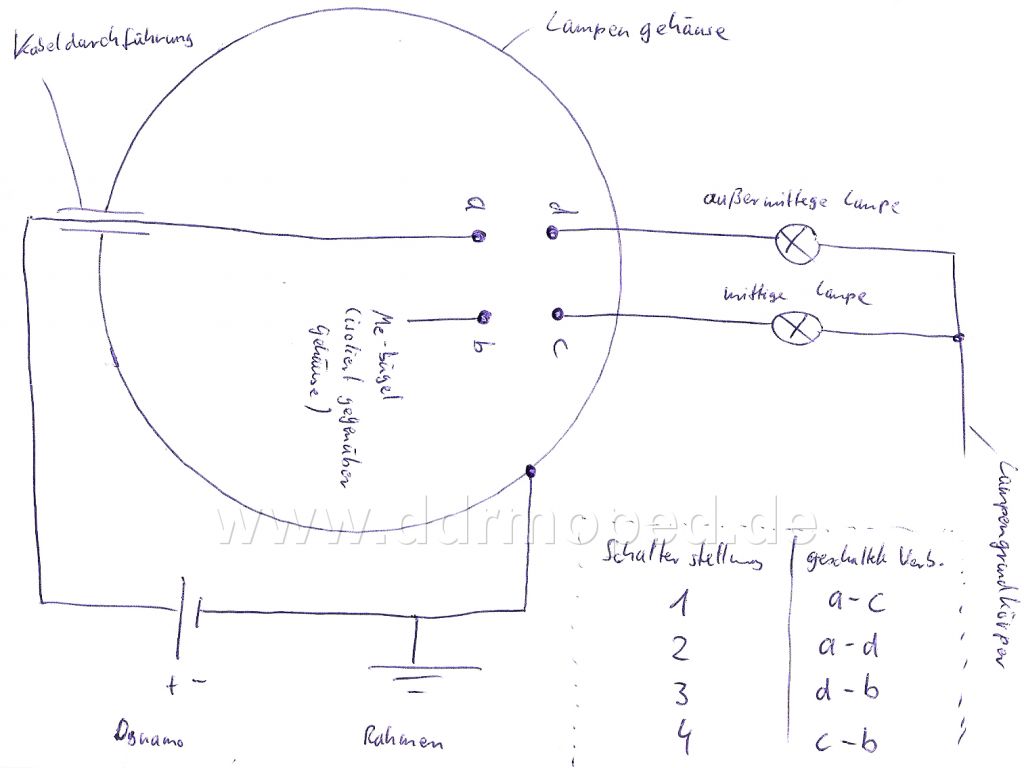 Kabeldurchführung
Lampengehäuse
a
d
außermittige Lampe
mittige Lampe
Me-bügel
(isoliert gegenüber
Gehäuse)
b
c
Lampengrundkörper
www.ddrmoped.de
Schalterstellung geschaltete Verb.
1 a-c
2 a-d
3 d-b
4 c-b
+ -
Dynamo
Rahmen